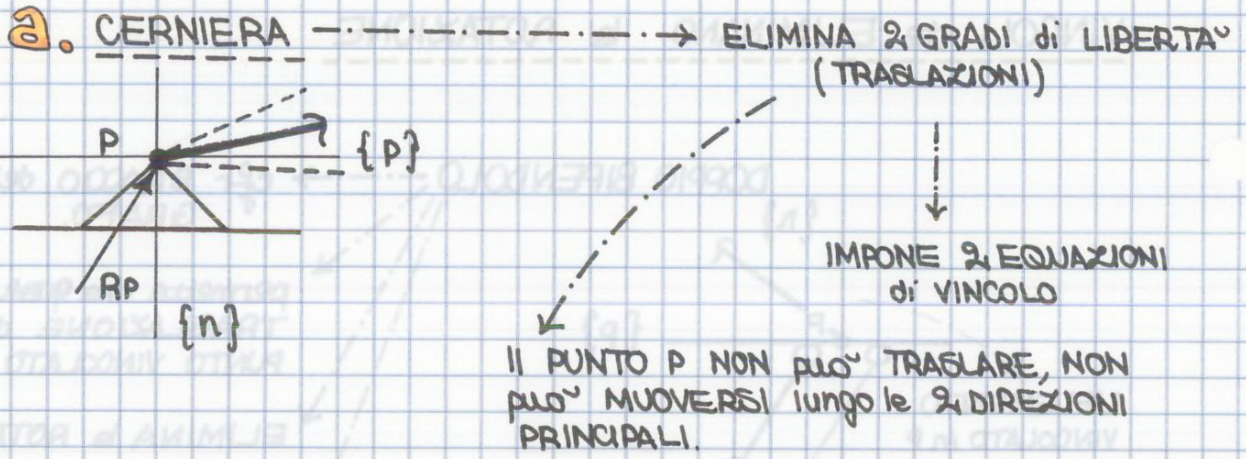 a. CERNIERA
ELIMINA 2 GRADI di LIBERTA'
(TRASLAZIONI)
P
{P}
RP
{n}
IMPONE 2 EQUAZIONI
di VINCOLO
Il PUNTO P NON può TRASLARE, NON
può MUOVERSI lungo le 2 DIREZIONI
PRINCIPALI.